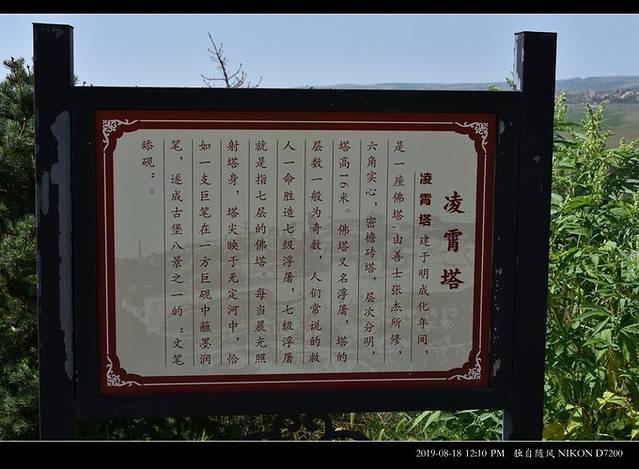 凌霄塔
凌霄塔 建于明成化年间，
是一座佛塔·由善士张杰所修，
六角实心，密檐砖塔，层次分明，
塔高16米。佛塔又名浮屠，塔的
层数一般为奇数，人们常说的救
人一命胜造七级浮屠，七级浮屠
就是指七层的佛塔。每当晨光照
射塔身，塔尖映于无定河中，恰
如一支巨笔在一方巨砚中蘸墨润
笔，遂成古堡八景之一的“文笔
舔砚”。
2019-08-18 12:10 PM 独自随风 NIKON D7200